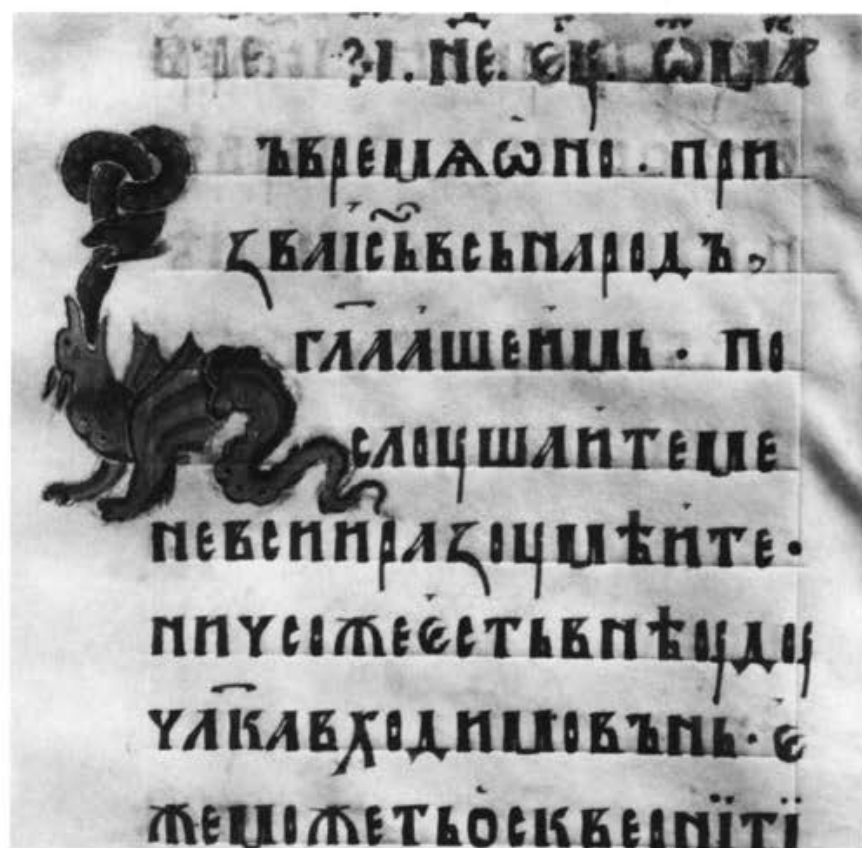 нⷣе. є҃ц. ѿ ма
ъ врѣмѧ ѡно · при
ꙁва і҃съ вьсь народъ ,
гл҃ааше имь · по
слоушаите ме
не вси и раꙁоумѣите ·
ничсоже єсть вьнѣоудоу
чл҃ка въходимо вънь · є
же можеть оскверниті